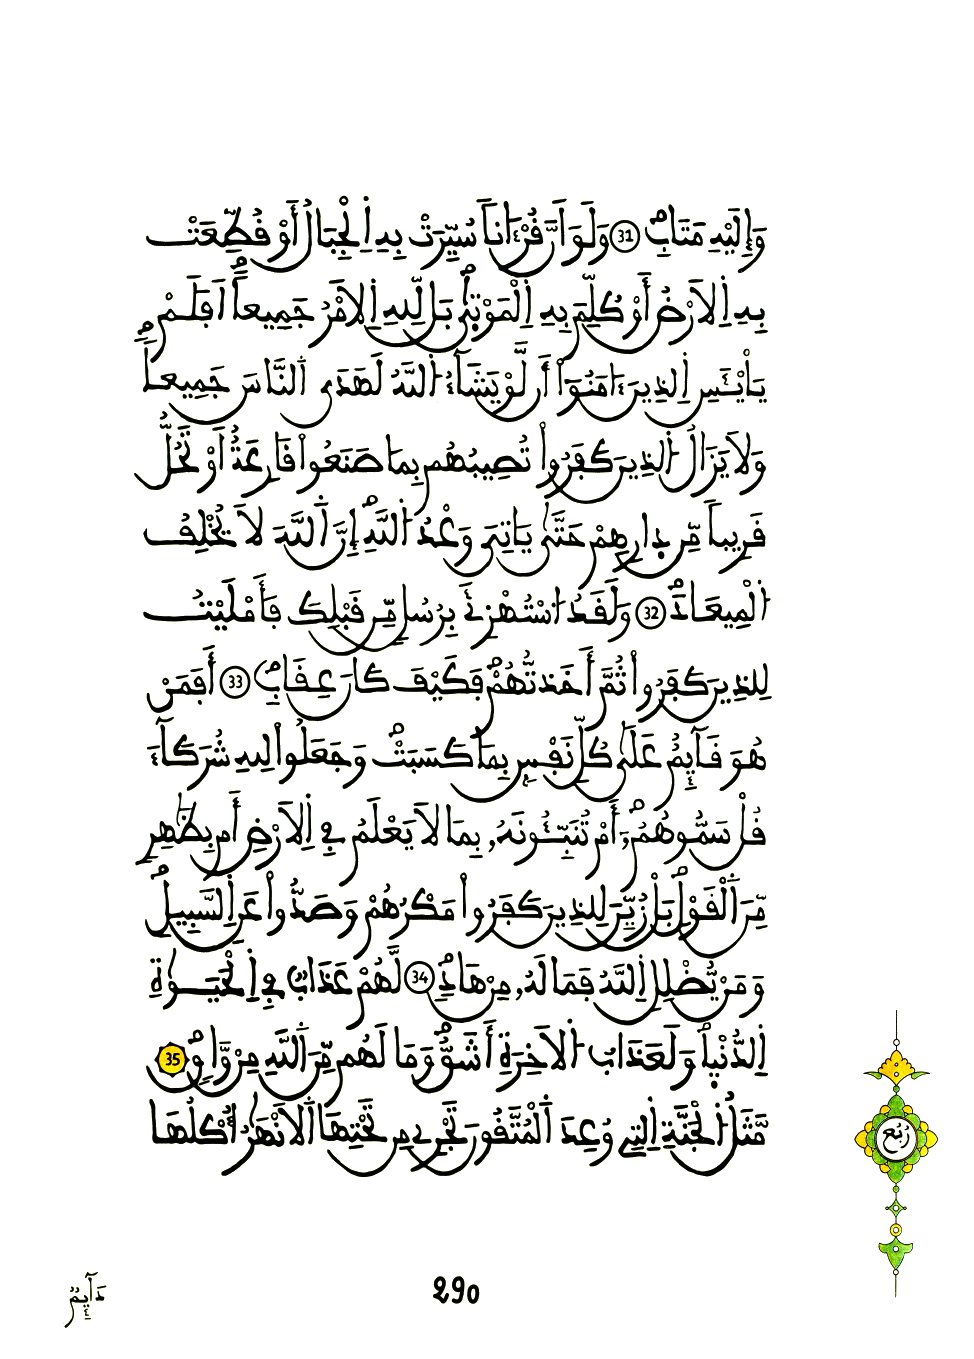 وَإِلَيْهِ مَتَابِۖ 31 وَلَوَ اَنَّ قُرْءَاناٗ سُيِّرَتْ بِهِ اِ۬لْجِبَالُ أَوْ قُطِّعَتْ
بِهِ اِ۬لَارْضُ أَوْ كُلِّمَ بِهِ اِ۬لْمَوْتٜيٰۖ بَل لِّلهِ اِ۬لَامْرُ جَمِيعاًۖ اَفَلَمْ
يَاْيْـَٔسِ اِ۬لذِينَ ءَامَنُوٓاْ أَن لَّوْ يَشَآءُ اُ۬للَّهُ لَهَدَى اَ۬لنَّاسَ جَمِيعاٗۖ
وَلَا يَزَالُ اُ۬لذِينَ كَفَرُواْ تُصِيبُهُم بِمَا صَنَعُواْ قَارِعَةٌ اَوْ تَحُلُّ
قَرِيباٗ مِّن دٜارِهِمْ حَتَّىٰ يَاتِيَ وَعْدُ اُ۬للَّهِۖ إِنَّ اَ۬للَّهَ لَا يُخْلِفُ
اُ۬لْمِيعَادَۖ 32 وَلَقَدُ اُ۟سْتُهْزِئَ بِرُسُلٖ مِّن قَبْلِكَ فَأَمْلَيْتُ
لِلذِينَ كَفَرُواْ ثُمَّ أَخَذتُّهُمْۖ فَكَيْفَ كَانَ عِقَابِۖ 33 أَفَمَنْ
هُوَ قَآئِمٌ عَلَىٰ كُلِّ نَفْسِۢ بِمَا كَسَبَتْۖ وَجَعَلُواْ لِلهِ شُرَكَآءَ
قُلْ سَمُّوهُمُۥٓۖ أَمْ تُنَبِّـُٔونَهُۥ بِمَا لَا يَعْلَمُ فِے اِ۬لَارْضِ أَم بِظَٰهِرٖ
مِّنَ اَ۬لْقَوْلِۖ بَلْ زُيِّنَ لِلذِينَ كَفَرُواْ مَكْرُهُمْ وَصَدُّواْ عَنِ اِ۬لسَّبِيلِۖ
وَمَنْ يُّضْلِلِ اِ۬للَّهُ فَمَا لَهُۥ مِنْ هَادٖۖ 34 لَّهُمْ عَذَابٞ فِے اِ۬لْحَيَوٰةِ
اِ۬لدُّنْيٜاۖ وَلَعَذَابُ اُ۬لَاخِرَةِ أَشَقُّۖ وَمَا لَهُم مِّنَ اَ۬للَّهِ مِنْ وَّاقٖۖ 35
مَّثَلُ اُ۬لْجَنَّةِ اِ۬لتِے وُعِدَ اَ۬لْمُتَّقُونَ تَجْرِے مِن تَحْتِهَا اَ۬لَانْهَٰرُۖ أُكُلُهَا
رُبُع
دَآئِمٞ
290